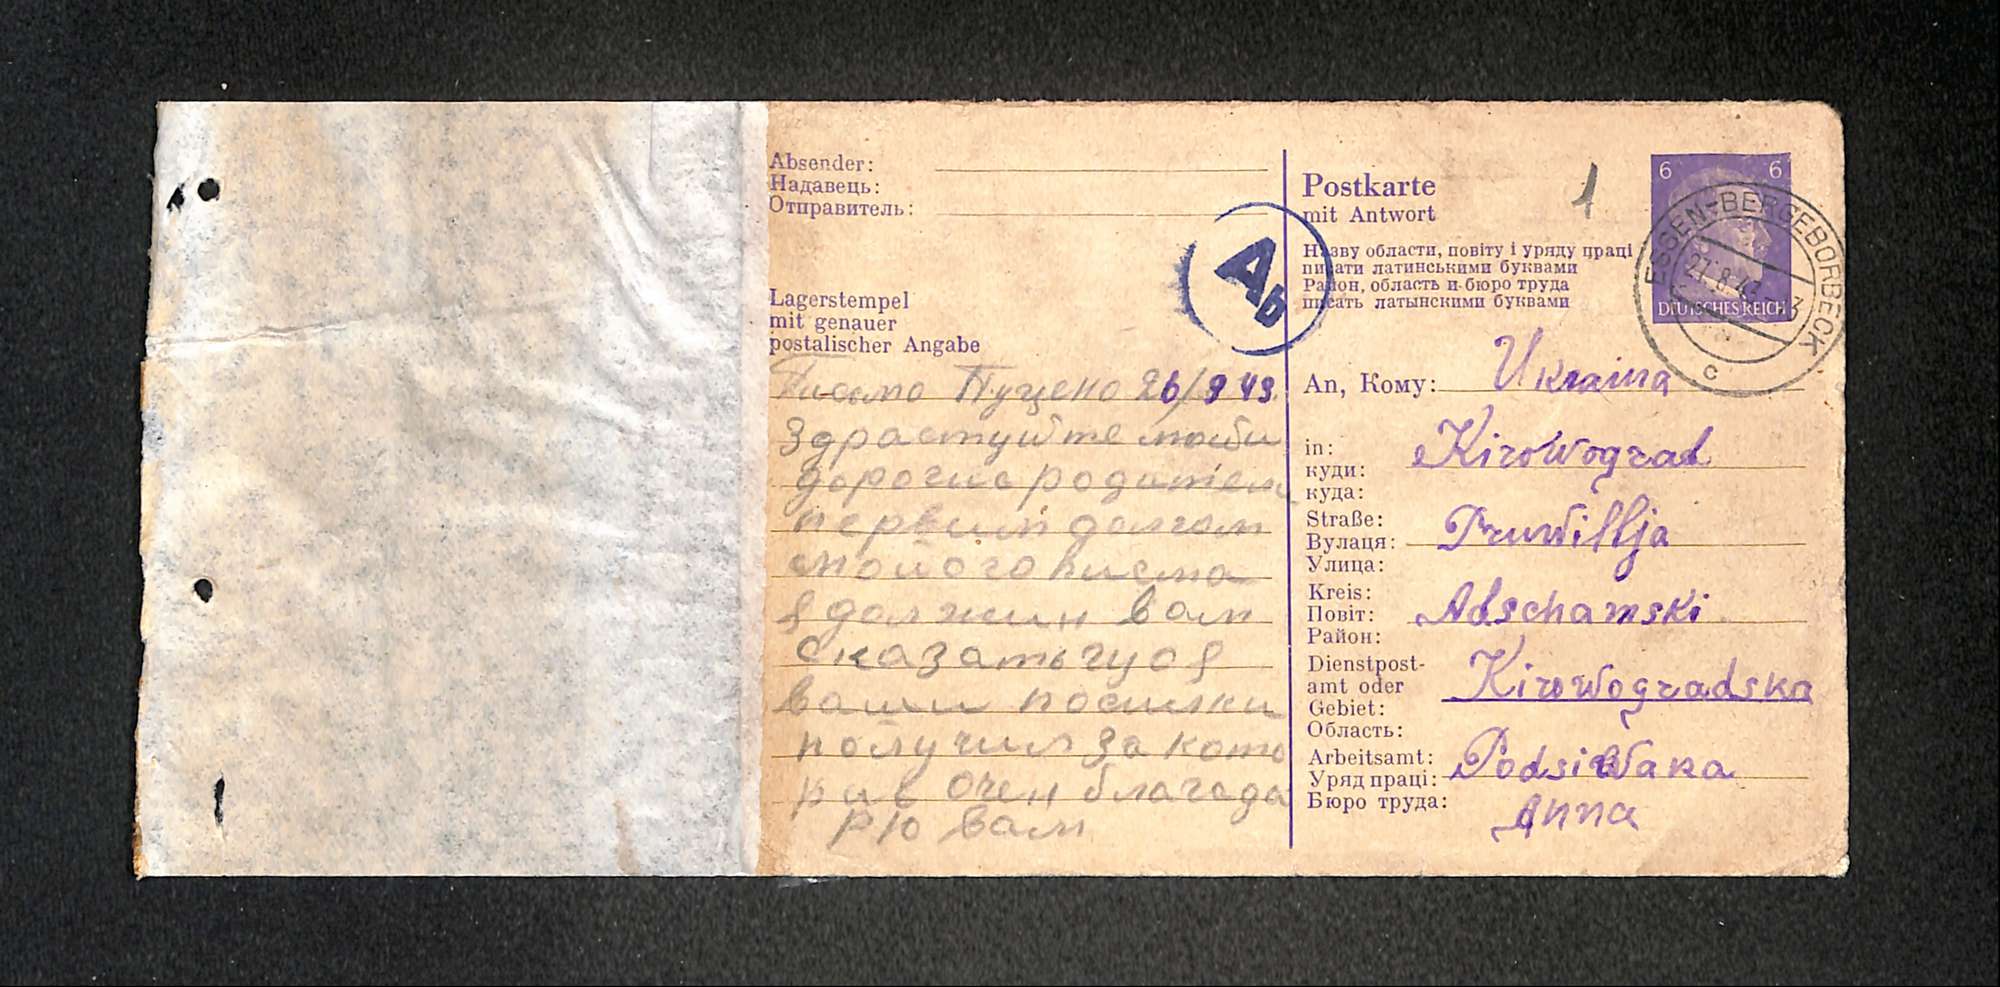 Absender:
Надавець:
Отправитель:
Lagerstempel
mit genauer
postalischer Angabe
Письмо Пущено 26/8 43
Здраствуйте мойи
дорогие родители
первим долгом
смойого писма
я должин вам
сказать чуо я
ваши посилки
получил за кото
рив очен благода
рю вам
Ab
Postkarte
mit Antwort
1
Назву области, повіту і уряду праці
писати латинськими буквами
Район, область и бюро труда
писать латынскими буквами
6 6
DEUTSCHES REICH
ESSEN-BERGEBORBECK
27.8.43
c
An, Кому: Ukraina
in: Kirowograd
куди:
куда:
Straße: Pruwillja
Вулаця:
Улица:
Kreis: Adschamski
Повіт:
Район:
Dienstpost-
amt oder Kirowogradska
Gebiet:
Область:
Arbeitsamt: Podsiwaka
Уряд праці:
Бюро труда: Anna